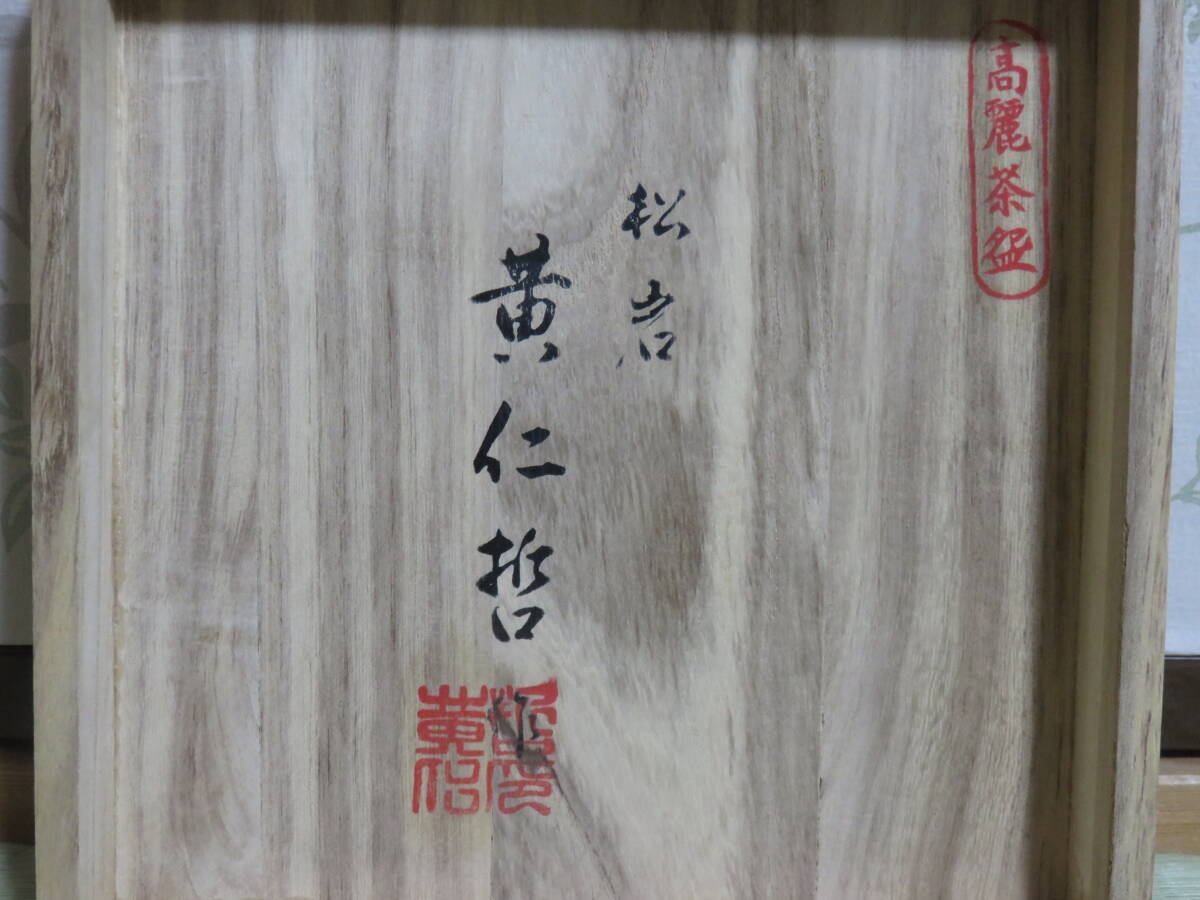 高麗茶盌
松岩
黄仁哲
作